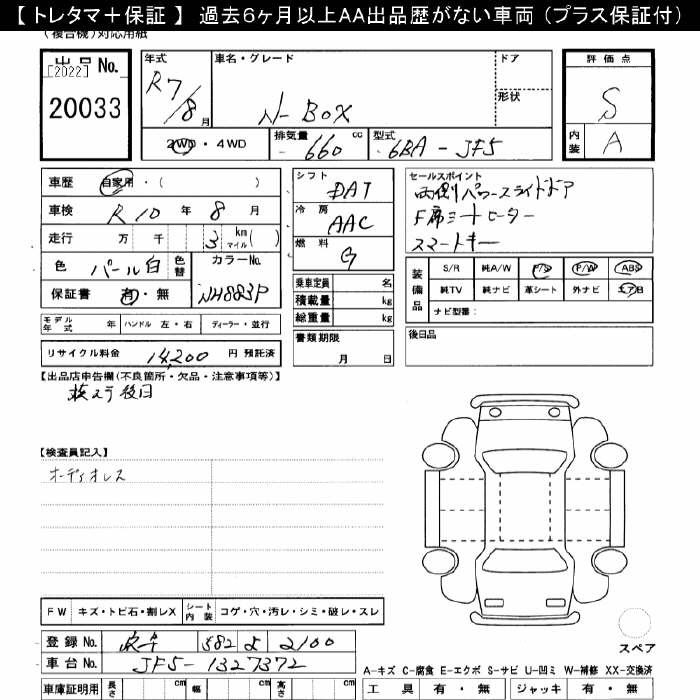 【 トレタマ＋保証 】 過去6ヶ月以上AA出品歴がない車両 (プラス保証付)
(複合機)対応用紙
出品 No.
[2022]
20033
年式 R7/8月
車名・グレード
N-BOX
ドア
形状
評価点
S
内装 A
2WD・4WD
排気量 660 cc
型式 6BA-JF5
車歴 自家用・( )
車検 R10年 8月
走行 万 千 3 km マイル( )
色 パール白 色替
カラーNo.
NH883P
保証書 有・無
シフト
DAT
冷房
AAC
燃料
G
乗車定員 名
積載量 kg
総重量 kg
書類期限
月 日
セールスポイント
両側パワースライドドア
F席シートヒーター
スマートキー
装備品
S/R 純A/W P/S P/W ABS
純TV 純ナビ 革シート 外ナビ エアB
ナビ型番：
後日品
モデル年式 年 ハンドル 左・右 ディーラー・並行
リサイクル料金 14,200 円 預託済
【出品店申告欄(不良箇所・欠品・注意事項等)】
検ステ後日
【検査員記入】
オーディオレス
FW キズ・トビ石・割レX シート内装 コゲ・穴・汚レ・シミ・破レ・スレ
登録 No. 582 よ 2100
車台 No. JF5-1327372
車庫証明用 長さ cm 幅 cm 高さ cm
スペア
A-キズ C-腐食 E-エクボ S-サビ U-凹ミ W-補修 XX-交換済
工具 有・無 ジャッキ 有・無